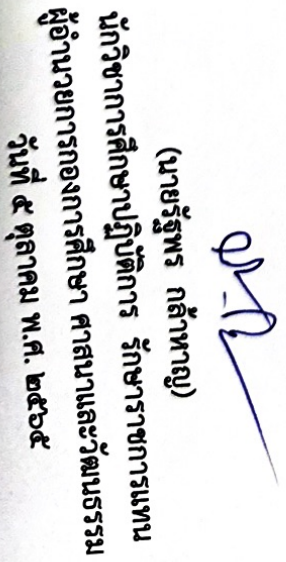 (นายรัฐพร กล้าหาญ)
นักวิชาการศึกษาปฏิบัติการ รักษาราชการแทน
ผู้อำนวยการกองการศึกษา ศาสนาและวัฒนธรรม
วันที่ ๕ ตุลาคม พ.ศ. ๒๕๖๕